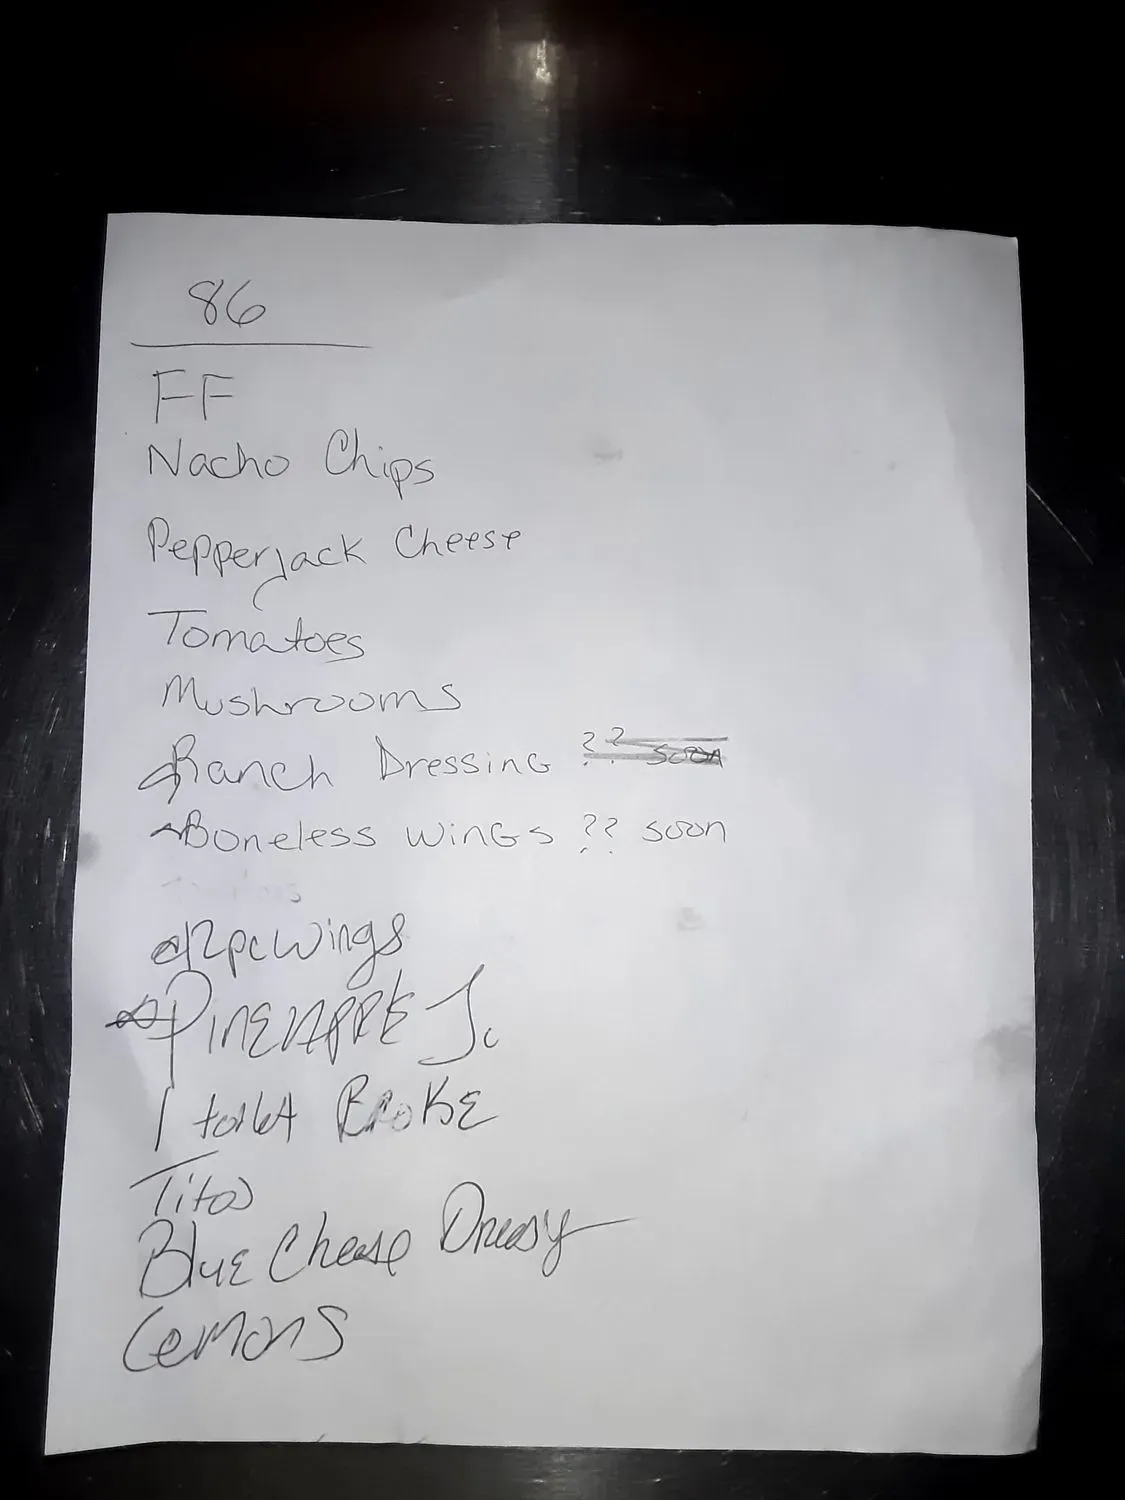 86
FF
Nacho Chips
Pepperjack Cheese
Tomatoes
Mushrooms
Ranch Dressing ?? soon
Boneless wings ?? soon
12pc wings
PINEAPPLE J.
1 toilet BROKE
Titos
Blue Cheese Dressing
Lemons